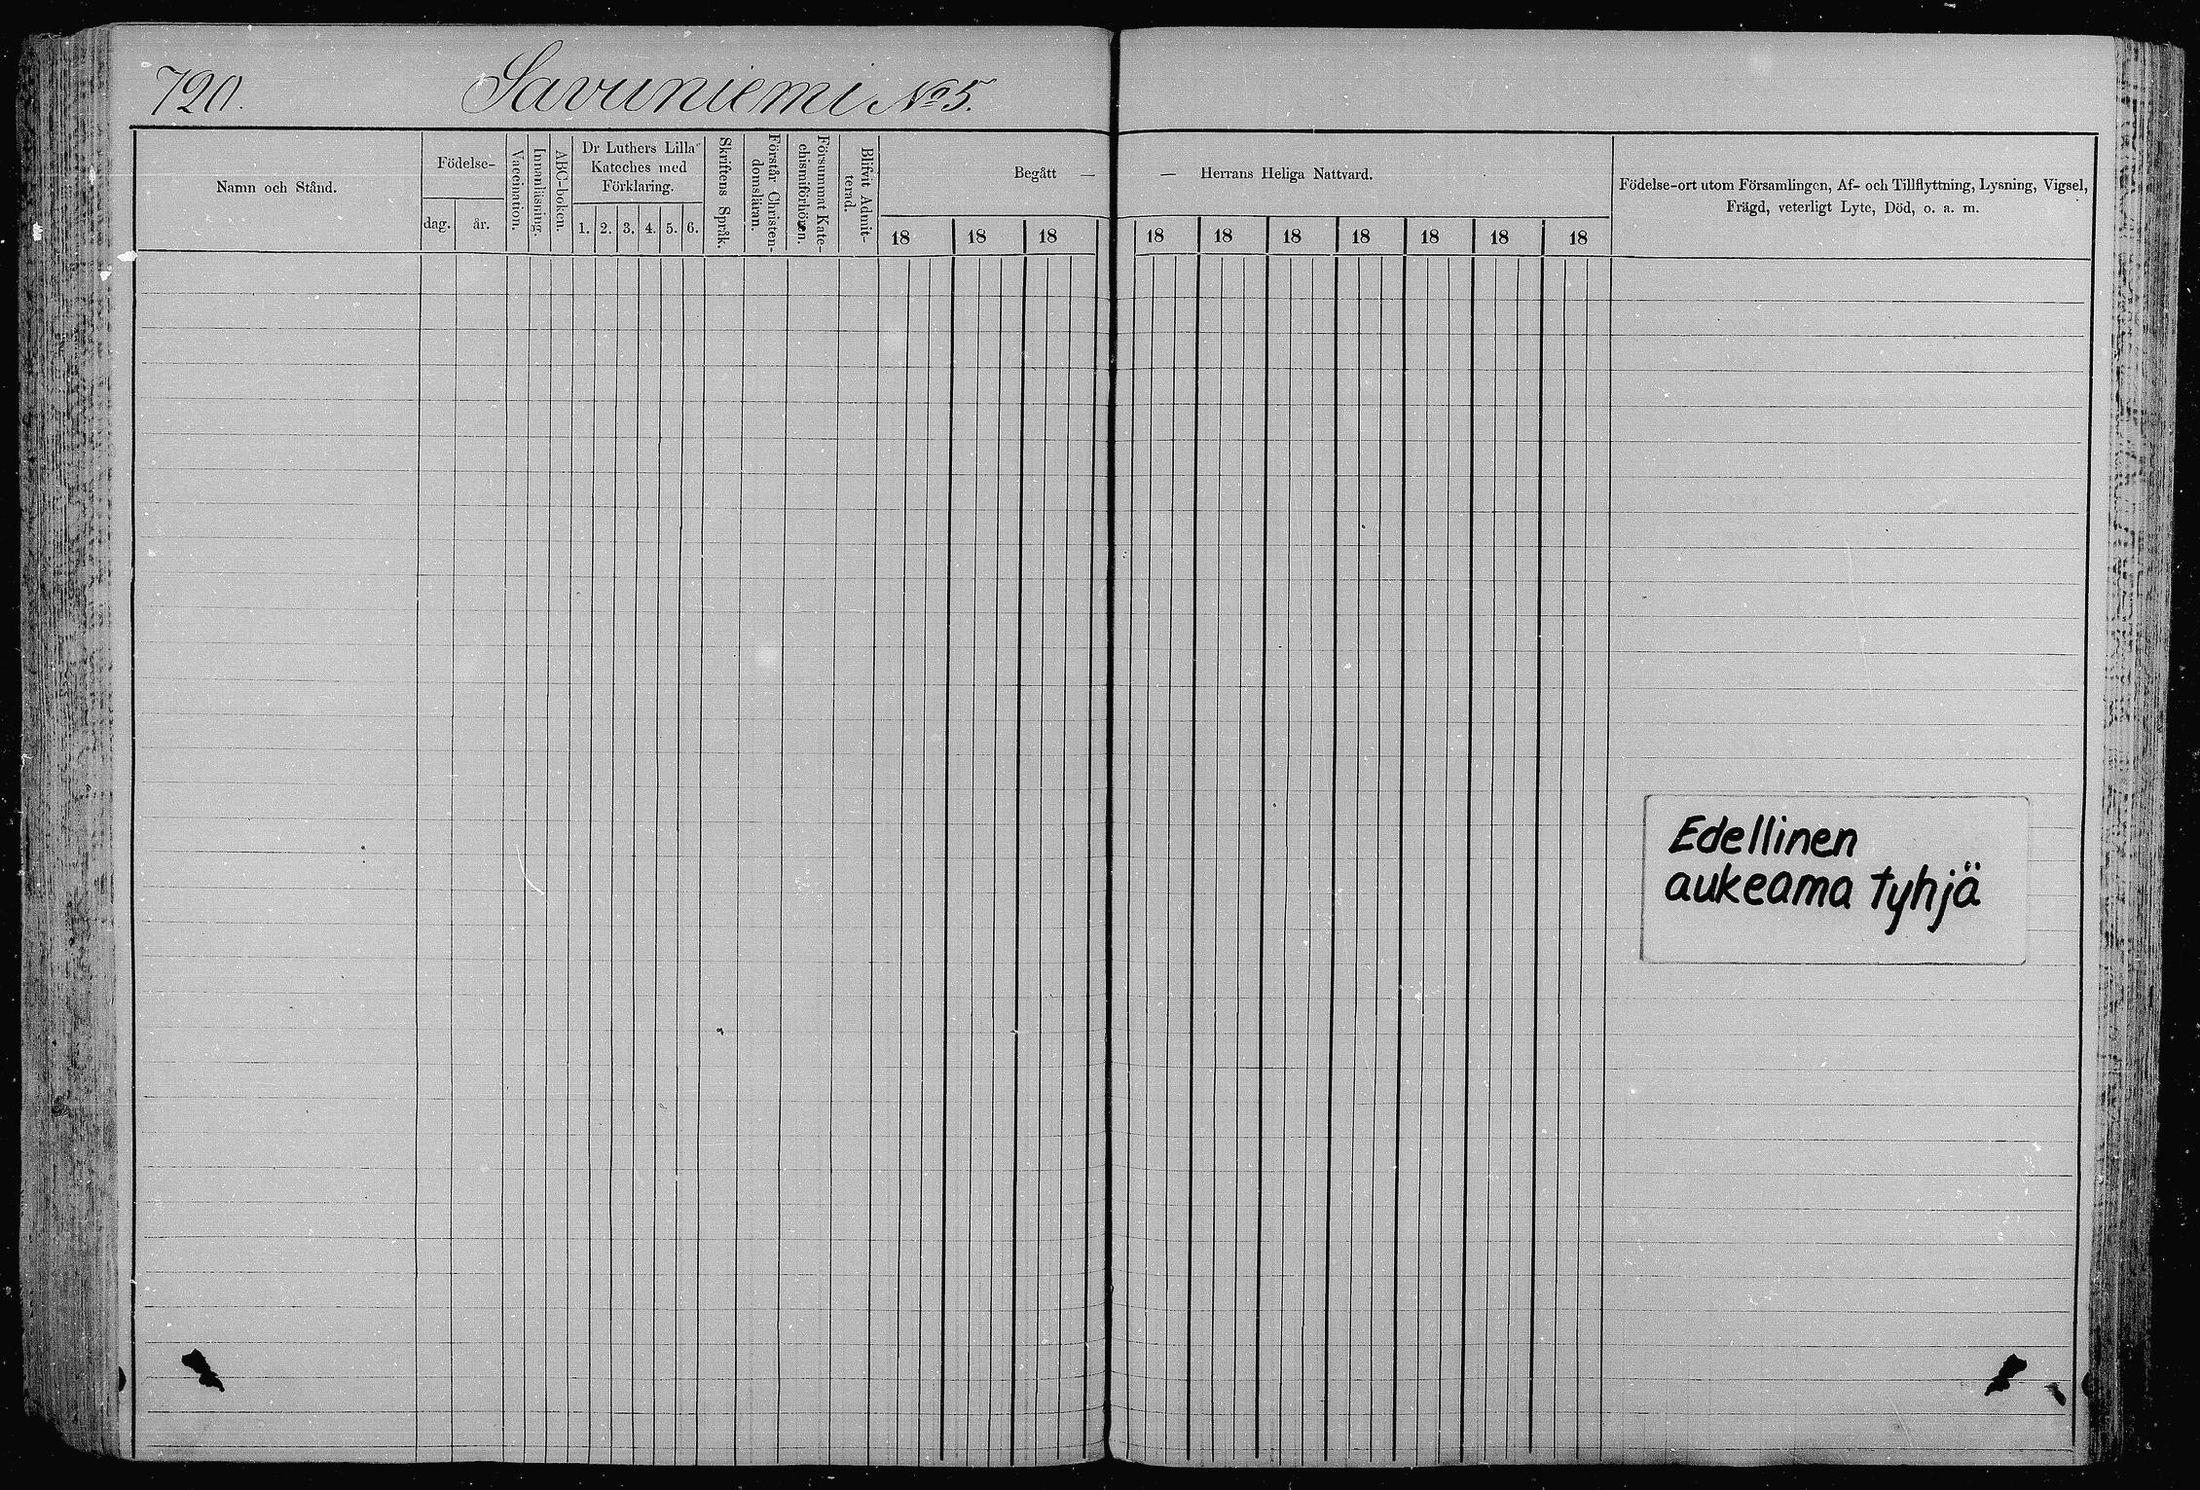 720.
Savuniemi No 5.
Namn och Stånd.
Födelse-
dag.
år.
Vaccination.
Innanläsning.
ABC-boken.
Dr Luthers Lilla
Kateches med
Förklaring.
1. 2. 3. 4. 5. 6.
Skriftens Språk.
Förstår Christen-
domsläran.
Försummat Kate-
chismiförhören.
Blifvit Admit-
terad.
Begått —
18 18 18
— Herrans Heliga Nattvard.
18 18 18 18 18 18 18
Födelse-ort utom Församlingen, Af- och Tillflyttning, Lysning, Vigsel,
Frägd, veterligt Lyte, Död, o. a. m.
Edellinen
aukeama tyhjä